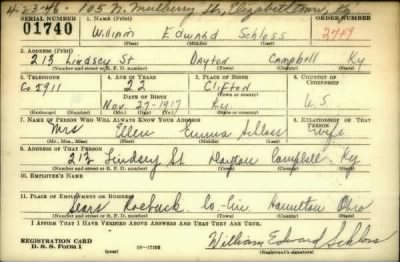 4-23-46 - 105 N. Mulberry St, Elizabethtown, Ky
SERIAL NUMBER
1. NAME (Print)
ORDER NUMBER
01740
William Edward Schloss
2749
(First) (Middle) (Last)
2. ADDRESS (Print)
213 Lindsey St Dayton Campbell Ky
(Number and street or R. F. D. number) (Town) (County) (State)
3. TELEPHONE
4. AGE IN YEARS
5. PLACE OF BIRTH
6. COUNTRY OF CITIZENSHIP
Co 5911
22
Clifton
DATE OF BIRTH
(Town or county)
U.S.
Nov. 27-1917
Ky
(Exchange) (Number)
(Mo.) (Day) (Yr.)
(State or country)
7. NAME OF PERSON WHO WILL ALWAYS KNOW YOUR ADDRESS
8. RELATIONSHIP OF THAT PERSON
Mrs Ellen Emma Schloss wife
(Mr., Mrs., Miss) (First) (Middle) (Last)
9. ADDRESS OF THAT PERSON
213 Lindsey St Dayton Campbell Ky
(Number and street or R. F. D. number) (Town) (County) (State)
10. EMPLOYER'S NAME
11. PLACE OF EMPLOYMENT OR BUSINESS
Sears Roebuck Co - Hamilton Ohio
(Number and street or R. F. D. number) (Town) (County) (State)
I AFFIRM THAT I HAVE VERIFIED ABOVE ANSWERS AND THAT THEY ARE TRUE.
REGISTRATION CARD
D. S. S. Form 1
William Edward Schloss
(Registrant's signature)